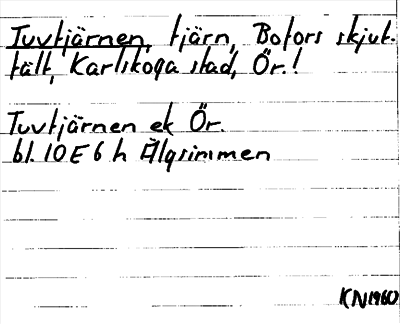 Tuvtjärnen, tjärn, Bofors skjut-
fält, Karlskoga stad, Ör.!
Tuvtjärnen ek Ör.
bl. 10 E 6 h Älgsimmen
KN1960